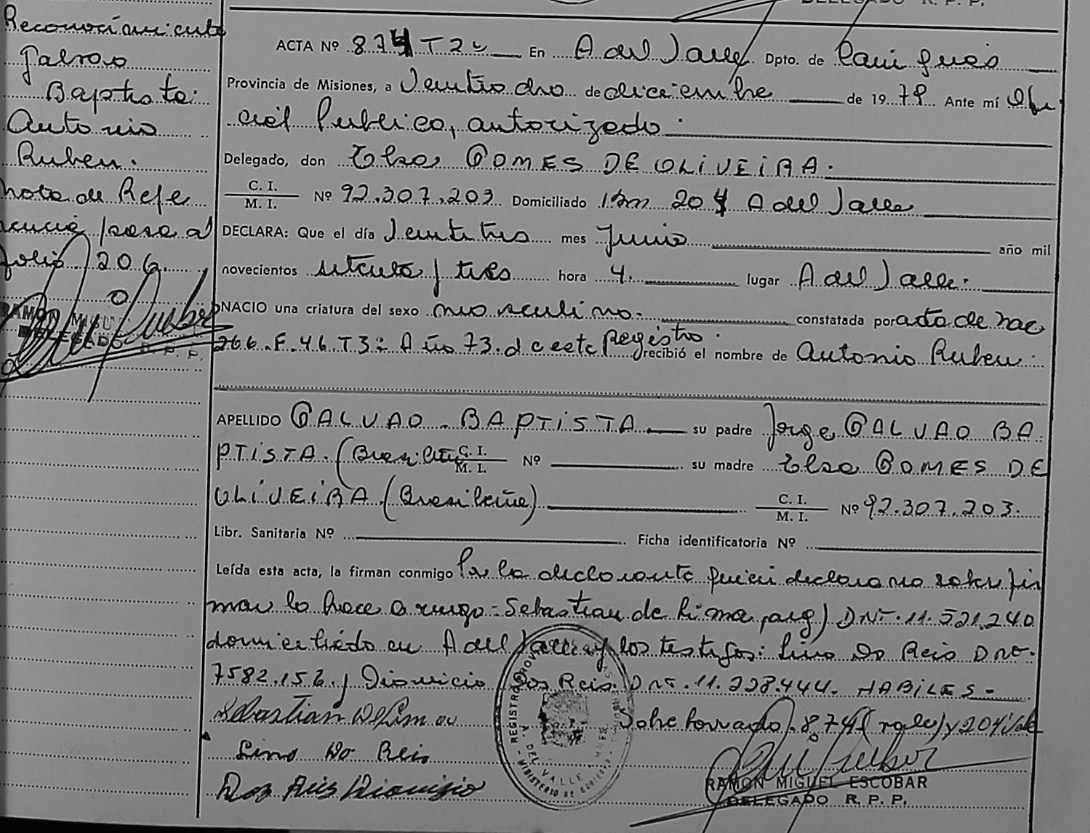 Reconocimiento
Galvao
Baptista
Antonio
Ruben.
nota de Refe
rencia pasa al
folio 206.
RAMON MIGU
DELEGADO R. P. P.
DELEGADO R. P. P.
ACTA Nº 874 T2c En A del Valle Dpto. de Cainguás
Provincia de Misiones, a Veintiocho de diciembre de 1978 Ante mí Ofi
cial Publico, autorizado.
Delegado, don Elsa GOMES DE OLIVEIRA.
C. I.
M. I. Nº 92.307.203 Domiciliado Km 204 A del Valle
DECLARA: Que el día Veintitres mes Junio año mil
novecientos setenta y tres hora 4. lugar A del Valle.
NACIO una criatura del sexo masculino. constatada por acta de nac
266. F. 46 T3: Año 73. de este Registro. recibió el nombre de Antonio Ruben.
APELLIDO GALVAO - BAPTISTA su padre Jorge GALVAO BA
PTISTA. (Brasileño) C. I. M. I. Nº su madre Elsa GOMES DE
OLIVEIRA (Brasileña) C. I. M. I. Nº 92.307.203.
Libr. Sanitaria Nº Ficha identificatoria Nº
Leída esta acta, la firman conmigo Por la declarante quien declara no saber fir
mar lo hace a ruego: Sebastian de Lima, arg) DNI. 11.521.240
domiciliado en A del Valle y los testigos: Lino Do Reis DNI.
7582.152. y Dionicio Dos Reis. DNI. 11.228.444. HABILES -
Sebastian De Lima Sobre borrado, 874 y 204 Vale
Lino Do Reis
Doz Reis Dionizio
REGISTRO PROV
A. DEL VALLE
MINISTERIO DE GOBIERNO
RAMON MIGUEL ESCOBAR
DELEGADO R. P. P.